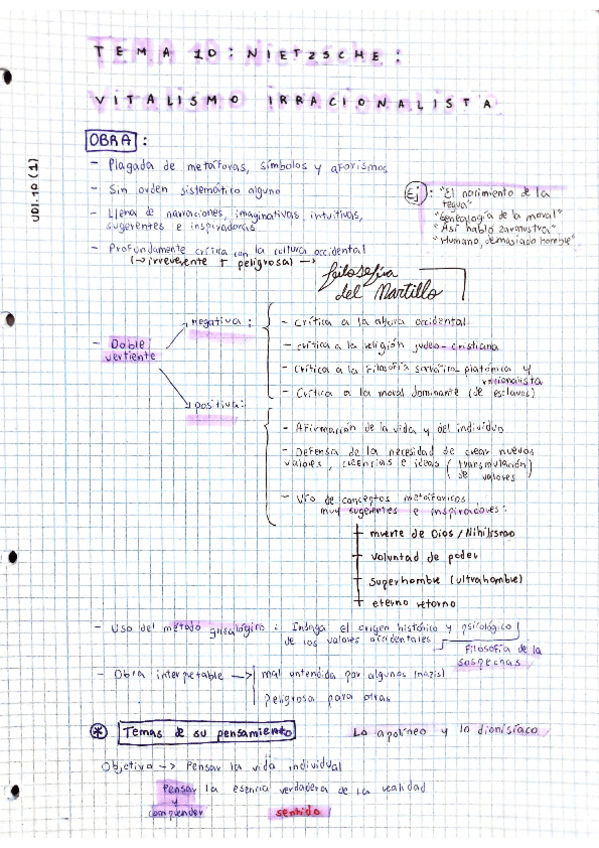 TEMA 10: NIETZSCHE:
VITALISMO IRRACIONALISTA
UDI. 10 (1)
OBRA:
- Plagada de metáforas, símbolos y aforismos
- Sin orden sistemático alguno
- Llena de narraciones, imaginativas, intuitivas,
sugerentes e inspiradoras
Ej: "El nacimiento de la
"Genealogía de la moral"
"Así habló zaratustra"
"Humano, demasiado
- Profundamente crítica con la cultura occidental
(→ irreverente + peligrosa) →
filosofía
del Martillo
- Doble
vertiente
negativa:
- crítica a la cultura occidental
- crítica a la religión judeo-cristiana
- crítica a la filosofía socrática platónica y
racionalista
- Crítica a la moral dominante (de esclavos)
positiva:
- Afirmación de la vida y del individuo
- Defensa de la necesidad de crear nuevos
valores, creencias e ideas (transmutación
de valores)
- Uso de conceptos metafóricos
muy sugerentes e inspiradores:
muerte de Dios / Nihilismo
voluntad de poder
superhombre (ultrahombre)
eterno retorno
- Uso del método genealógico: Indaga el origen histórico y psicológico
de los valores occidentales
Filosofía de la
sospechas
- Obra interpretable → mal entendida por algunos (nazis)
peligrosa para otros
* Temas de su pensamiento
Lo apolíneo y lo dionisíaco
Objetivo → Pensar la vida individual
Pensar la esencia verdadera de la realidad
y
comprender
sentido